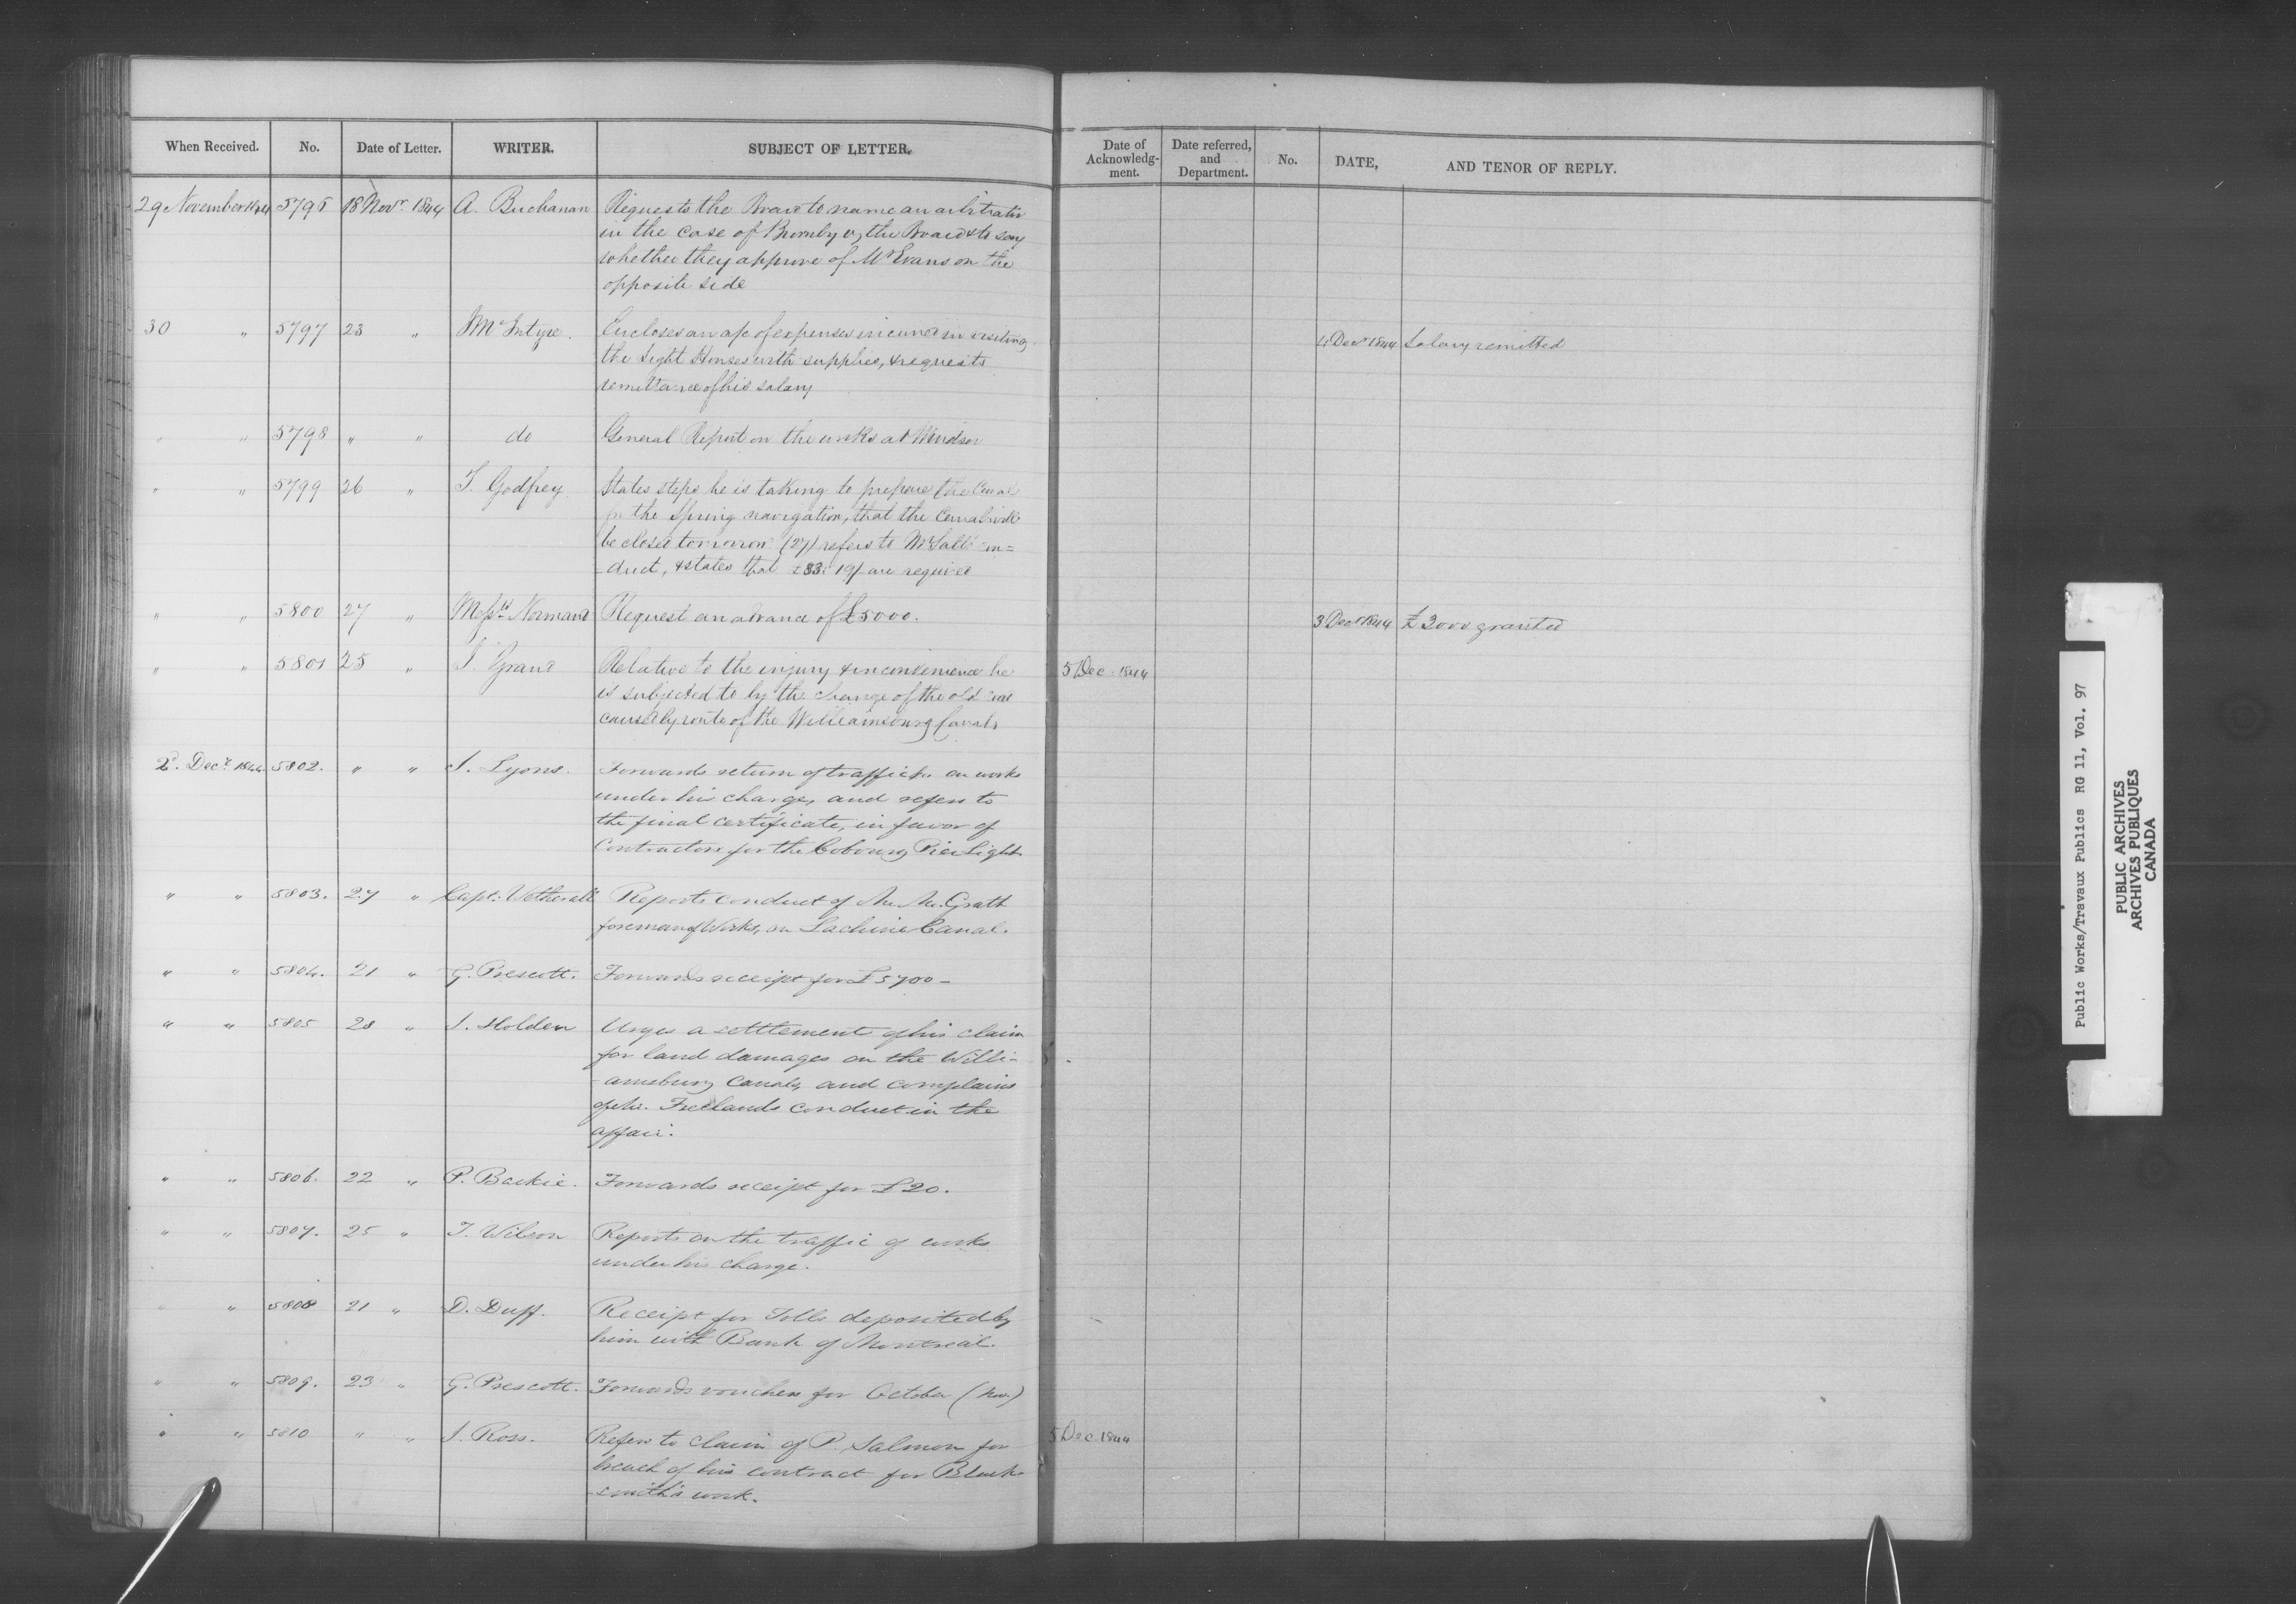 When Received. No. Date of Letter. WRITER. SUBJECT OF LETTER. Date of Acknowledg-ment. Date referred, and Department. No. DATE, AND TENOR OF REPLY.
29 November 1844 5796 18 Novr. 1844 A. Buchanan Requests the Board to name an arbitrator
in the case of Brumby vs the Board & to say
whether they approve of Mr Evans on the
opposite side
30 " 5797 23 " McIntyre. Encloses an a/c of expenses incurred in visiting 4 Decr 1844 Salary remitted
the Light Houses with supplies, & requests
remittance of his salary
" " 5798 " " do General Report on the works at Windsor
" " 5799 26 " T. Godfrey States steps he is taking to prepare the Canal
for the Spring navigation, that the Canal will
be closed tomorrow (27) refers to Mr con=
-duct, & states that £83: 19/ are required
" " 5800 27 " Messrs Normand Request an advance of £5000. 3 Decr 1844 £3000 granted
" " 5801 25 " J. Grant Relative to the injury & inconvenience he 5 Dec. 1844
is subjected to by the change of the old road
caused by route of the Williamsburg Canals
2. Decr. 1844 5802. " " J. Lyons. Forwards return of traffic &c. on works
under his charge, and refers to
the final certificate, in favor of
Contractors for the Cobourg Pier Light.
" " 5803. 27 " Capt: Wetherall Reports conduct of Mr. McGrath
foreman of Works, on Lachine Canal.
" " 5804. 21 " G. Prescott. Forwards receipt for £5700-
" " 5805 28 " J. Holden Urges a settlement of his claim
for land damages on the Willi-
-amsburg Canals, and complains
of Mr. Freelands conduct in the
affair.
" " 5806. 22 " P. Baikie. Forwards receipt for £20.
" " 5807. 25 " T. Wilson Reports on the traffic of works
under his charge.
" " 5808 21 " D. Duff. Receipt for Tolls deposited by
him with Bank of Montreal.
" " 5809. 23 " G. Prescott. Forwards vouchers for October (Nov.)
" " 5810 " " J. Ross. Refers to claim of P. Salmon for 5 Dec. 1844
breach of his contract for Black-
-smith's work.
Public Works/Travaux Publics RG 11, Vol. 97
PUBLIC ARCHIVES
ARCHIVES PUBLIQUES
CANADA